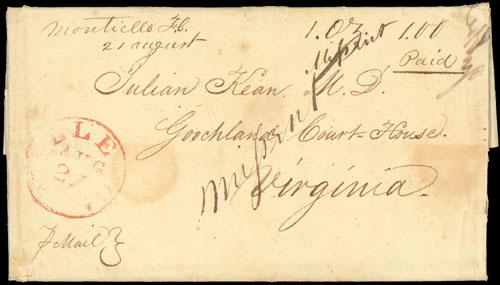 Monticello Fl.
21 august
1.03 1.00
Missent
Paid
Julian Kean M. D.
Goochland Court-House.
Missent
Virginia.
AUG
27
Mail